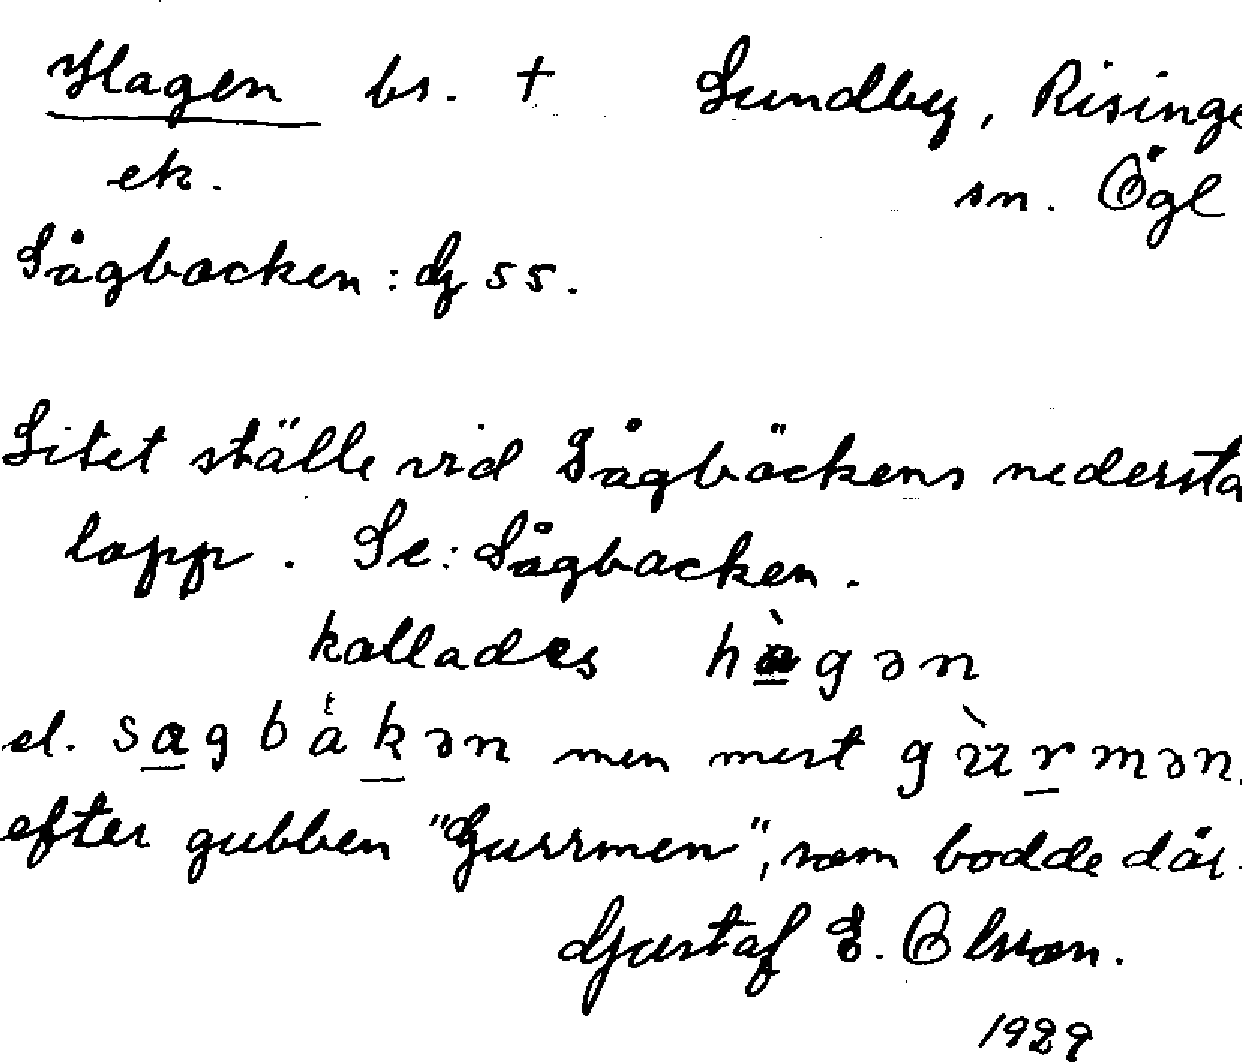 Hagen bs. † Sundby, Risinge
ek. sn. Ögl
Sågbacken: dj 55.
Litet ställe vid Sågbäckens nedersta
lopp. Se: Sågbacken.
kallades hàgən
el. sagbákən men mest gùrmən.
efter gubben "Gurrmen", som bodde där.
Gustaf E. Olsson.
1929